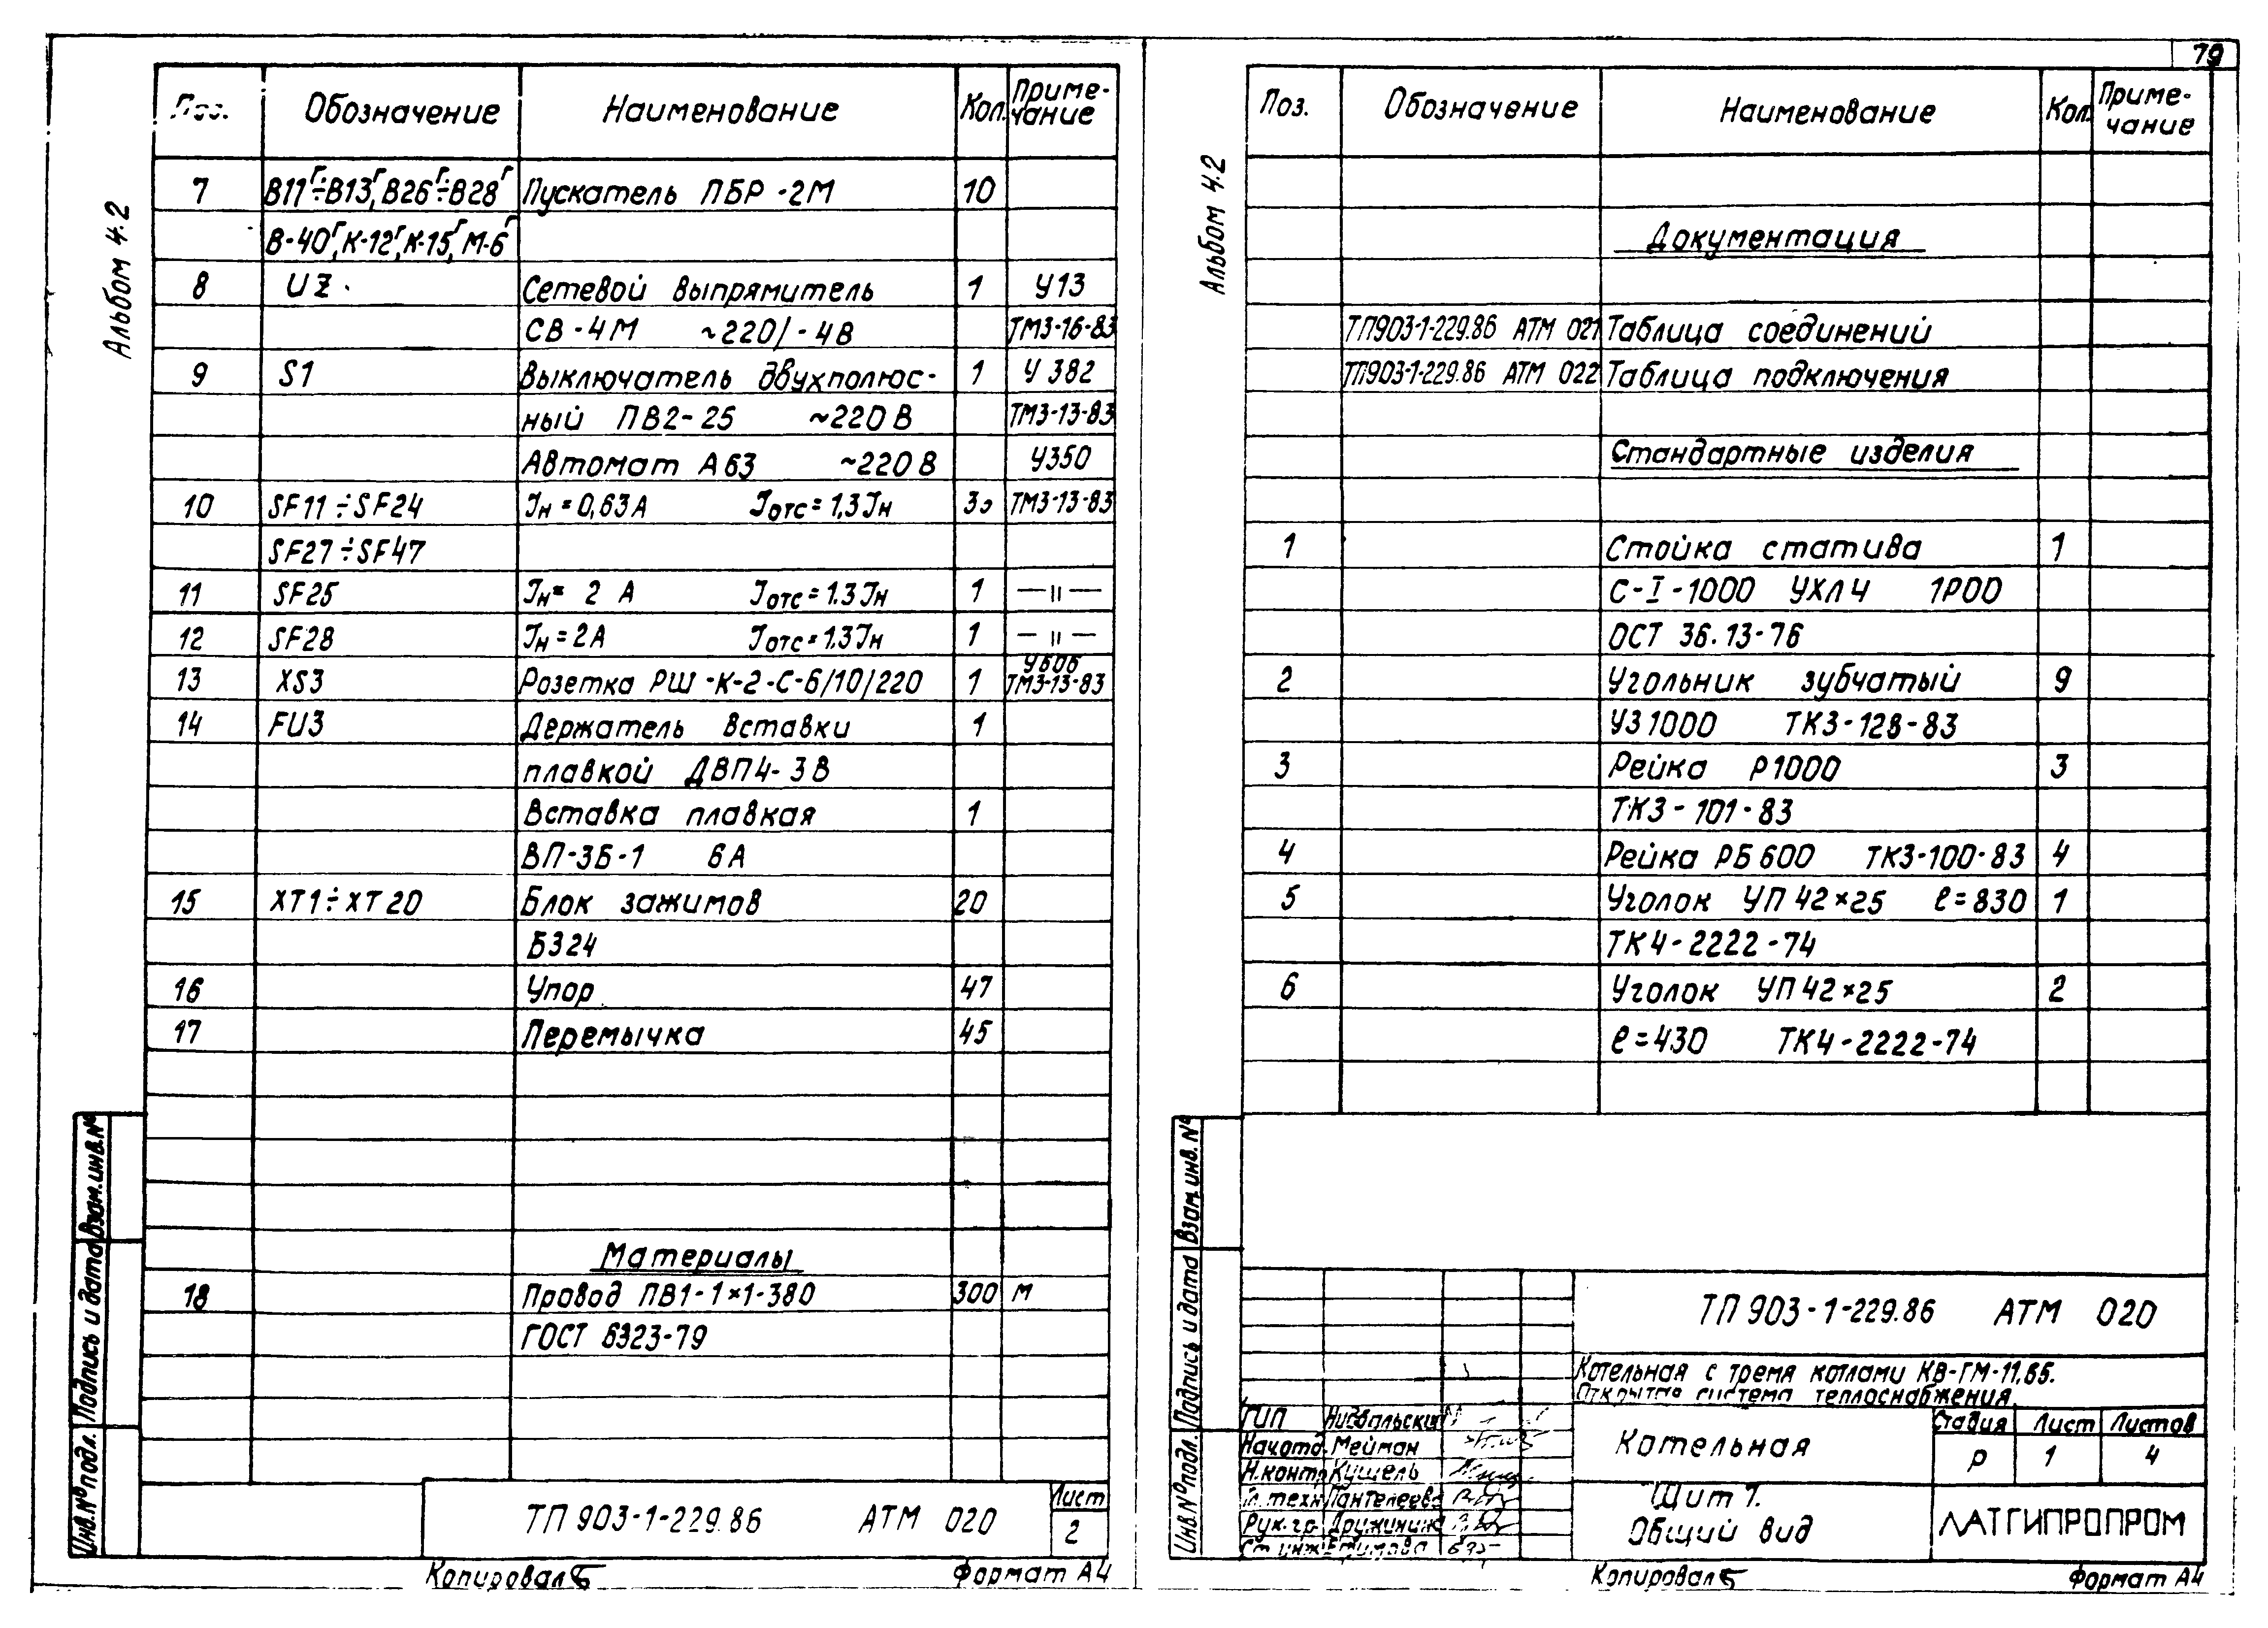 79
Альбом 4.2
Поз. Обозначение Наименование Кол. Приме-
чание
7 В11г÷В13г, В26г÷В28г Пускатель ПБР-2М 10
В-40г, К-12г, К-15г, М-6г
8 UZ Сетевой выпрямитель 1 У13
СВ-4М ~220/-4В ТМ3-16-83
9 S1 Выключатель двухполюс- 1 У382
ный ПВ2-25 ~220В ТМ3-13-83
Автомат А63 ~220В У350
10 SF11÷SF24 Iн=0,63А Iотс=1,3Iн ТМ3-13-83
SF27÷SF47
11 SF25 Iн=2 А Iотс=1.3Iн 1 —"—
12 SF28 Iн=2А Iотс=1.3Iн 1 —"—
13 XS3 Розетка РШ-К-2-С-6/10/220 1 У606
ТМ3-13-83
14 FU3 Держатель вставки 1
плавкой ДВП4-3В
Вставка плавкая 1
ВП-3Б-1 6А
15 XT1÷XT20 Блок зажимов 20
БЗ24
16 Упор 47
17 Перемычка 45
Материалы
18 Провод ПВ1-1×1-380 300 м
ГОСТ 6323-79
Взам.инв.№
Подпись и дата
Инв.№подл.
ТП 903-1-229.86 АТМ 020
Лист
2
Копировал
Формат А4
Альбом 4.2
Поз. Обозначение Наименование Кол. Приме-
чание
Документация
ТП903-1-229.86 АТМ 021 Таблица соединений
ТП903-1-229.86 АТМ 022 Таблица подключения
Стандартные изделия
1 Стойка статива 1
С-I-1000 УХЛ4 1Р00
ОСТ 36.13-76
2 Угольник зубчатый 9
УЗ1000 ТК3-128-83
3 Рейка Р1000 3
ТК3-101-83
4 Рейка РБ600 ТК3-100-83 4
5 Уголок УП 42×25 ℓ=830 1
ТК4-2222-74
6 Уголок УП 42×25 2
ℓ=430 ТК4-2222-74
Взам.инв.№
Подпись и дата
Инв.№подл.
ТП 903-1-229.86 АТМ 020
Котельная с тремя котлами КВ-ГМ-11,65.
Открытая система теплоснабжения.
ГИП
Нач.отд. Мейман
Н.контр Кушель
Гл.техн Пантелеева
Рук.гр. Дружинина
Ст.инж Ефимова
Котельная
Стадия Лист Листов
Р 1 4
Щит 1.
Общий вид
ЛАТГИПРОПРОМ
Копировал
Формат А4